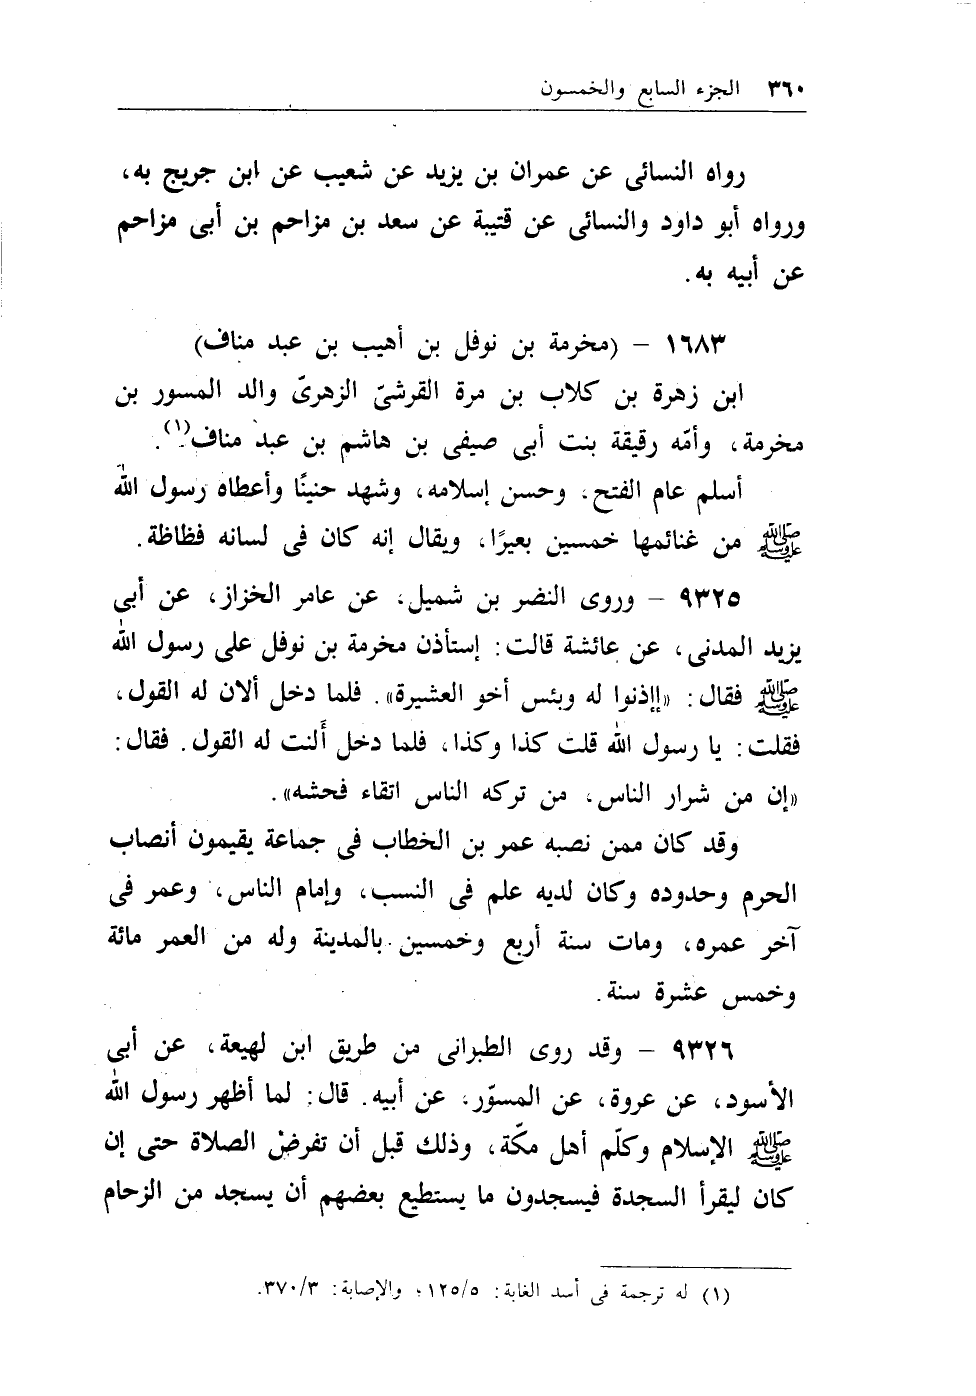 ٣٦٠ الجزء السابع والخمسون
رواه النسائى عن عمران بن يزيد عن شعيب عن ابن جريج به،
ورواه أبو داود والنسائى عن قتيبة عن سعد بن مزاحم بن أبى مزاحم
عن أبيه به.
١٦٨٣ - (مخرمة بن نوفل بن أهيب بن عبد مناف)
ابن زهرة بن كلاب بن مرة القرشىّ الزهرىّ والد المسور بن
مخرمة، وأمّه رقيقة بنت أبى صيفى بن هاشم بن عبد مناف(١).
أسلم عام الفتح، وحسن إسلامه، وشهد حنينًا وأعطاه رسول الله
ﷺ من غنائمها خمسين بعيرًا، ويقال إنه كان فى لسانه فظاظة.
٩٣٢٥ - وروى النضر بن شميل، عن عامر الخزاز، عن أبى
يزيد المدنى، عن عائشة قالت: إستأذن مخرمة بن نوفل على رسول الله
ﷺ فقال: «إإذنوا له وبئس أخو العشيرة». فلما دخل ألان له القول،
فقلت: يا رسول الله قلت كذا وكذا، فلما دخل أَلنت له القول. فقال:
«إن من شرار الناس، من تركه الناس اتقاء فحشه».
وقد كان ممن نصبه عمر بن الخطاب فى جماعة يقيمون أنصاب
الحرم وحدوده وكان لديه علم فى النسب، وإمام الناس، وعمر فى
آخر عمره، ومات سنة أربع وخمسين بالمدينة وله من العمر مائة
وخمس عشرة سنة.
٩٣٢٦ - وقد روى الطبرانى من طريق ابن لهيعة، عن أبى
الأسود، عن عروة، عن المسوّر، عن أبيه. قال: لما أظهر رسول الله
ﷺ الإسلام وكلّم أهل مكّة، وذلك قبل أن تفرضْ الصلاة حتى إن
كان ليقرأ السجدة فيسجدون ما يستطيع بعضهم أن يسجد من الزحام
(١) له ترجمة فى أسد الغابة: ١٢٥/٥؛ والإصابة: ٣٧٠/٣.